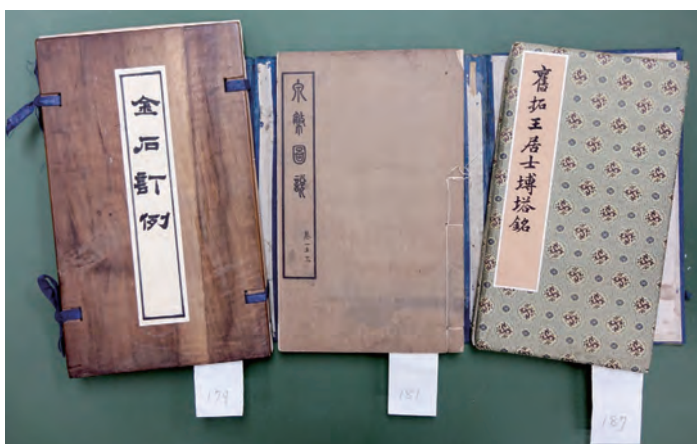 金石訂例
泉幣圖說
舊拓王居士塼塔銘
179
181
187